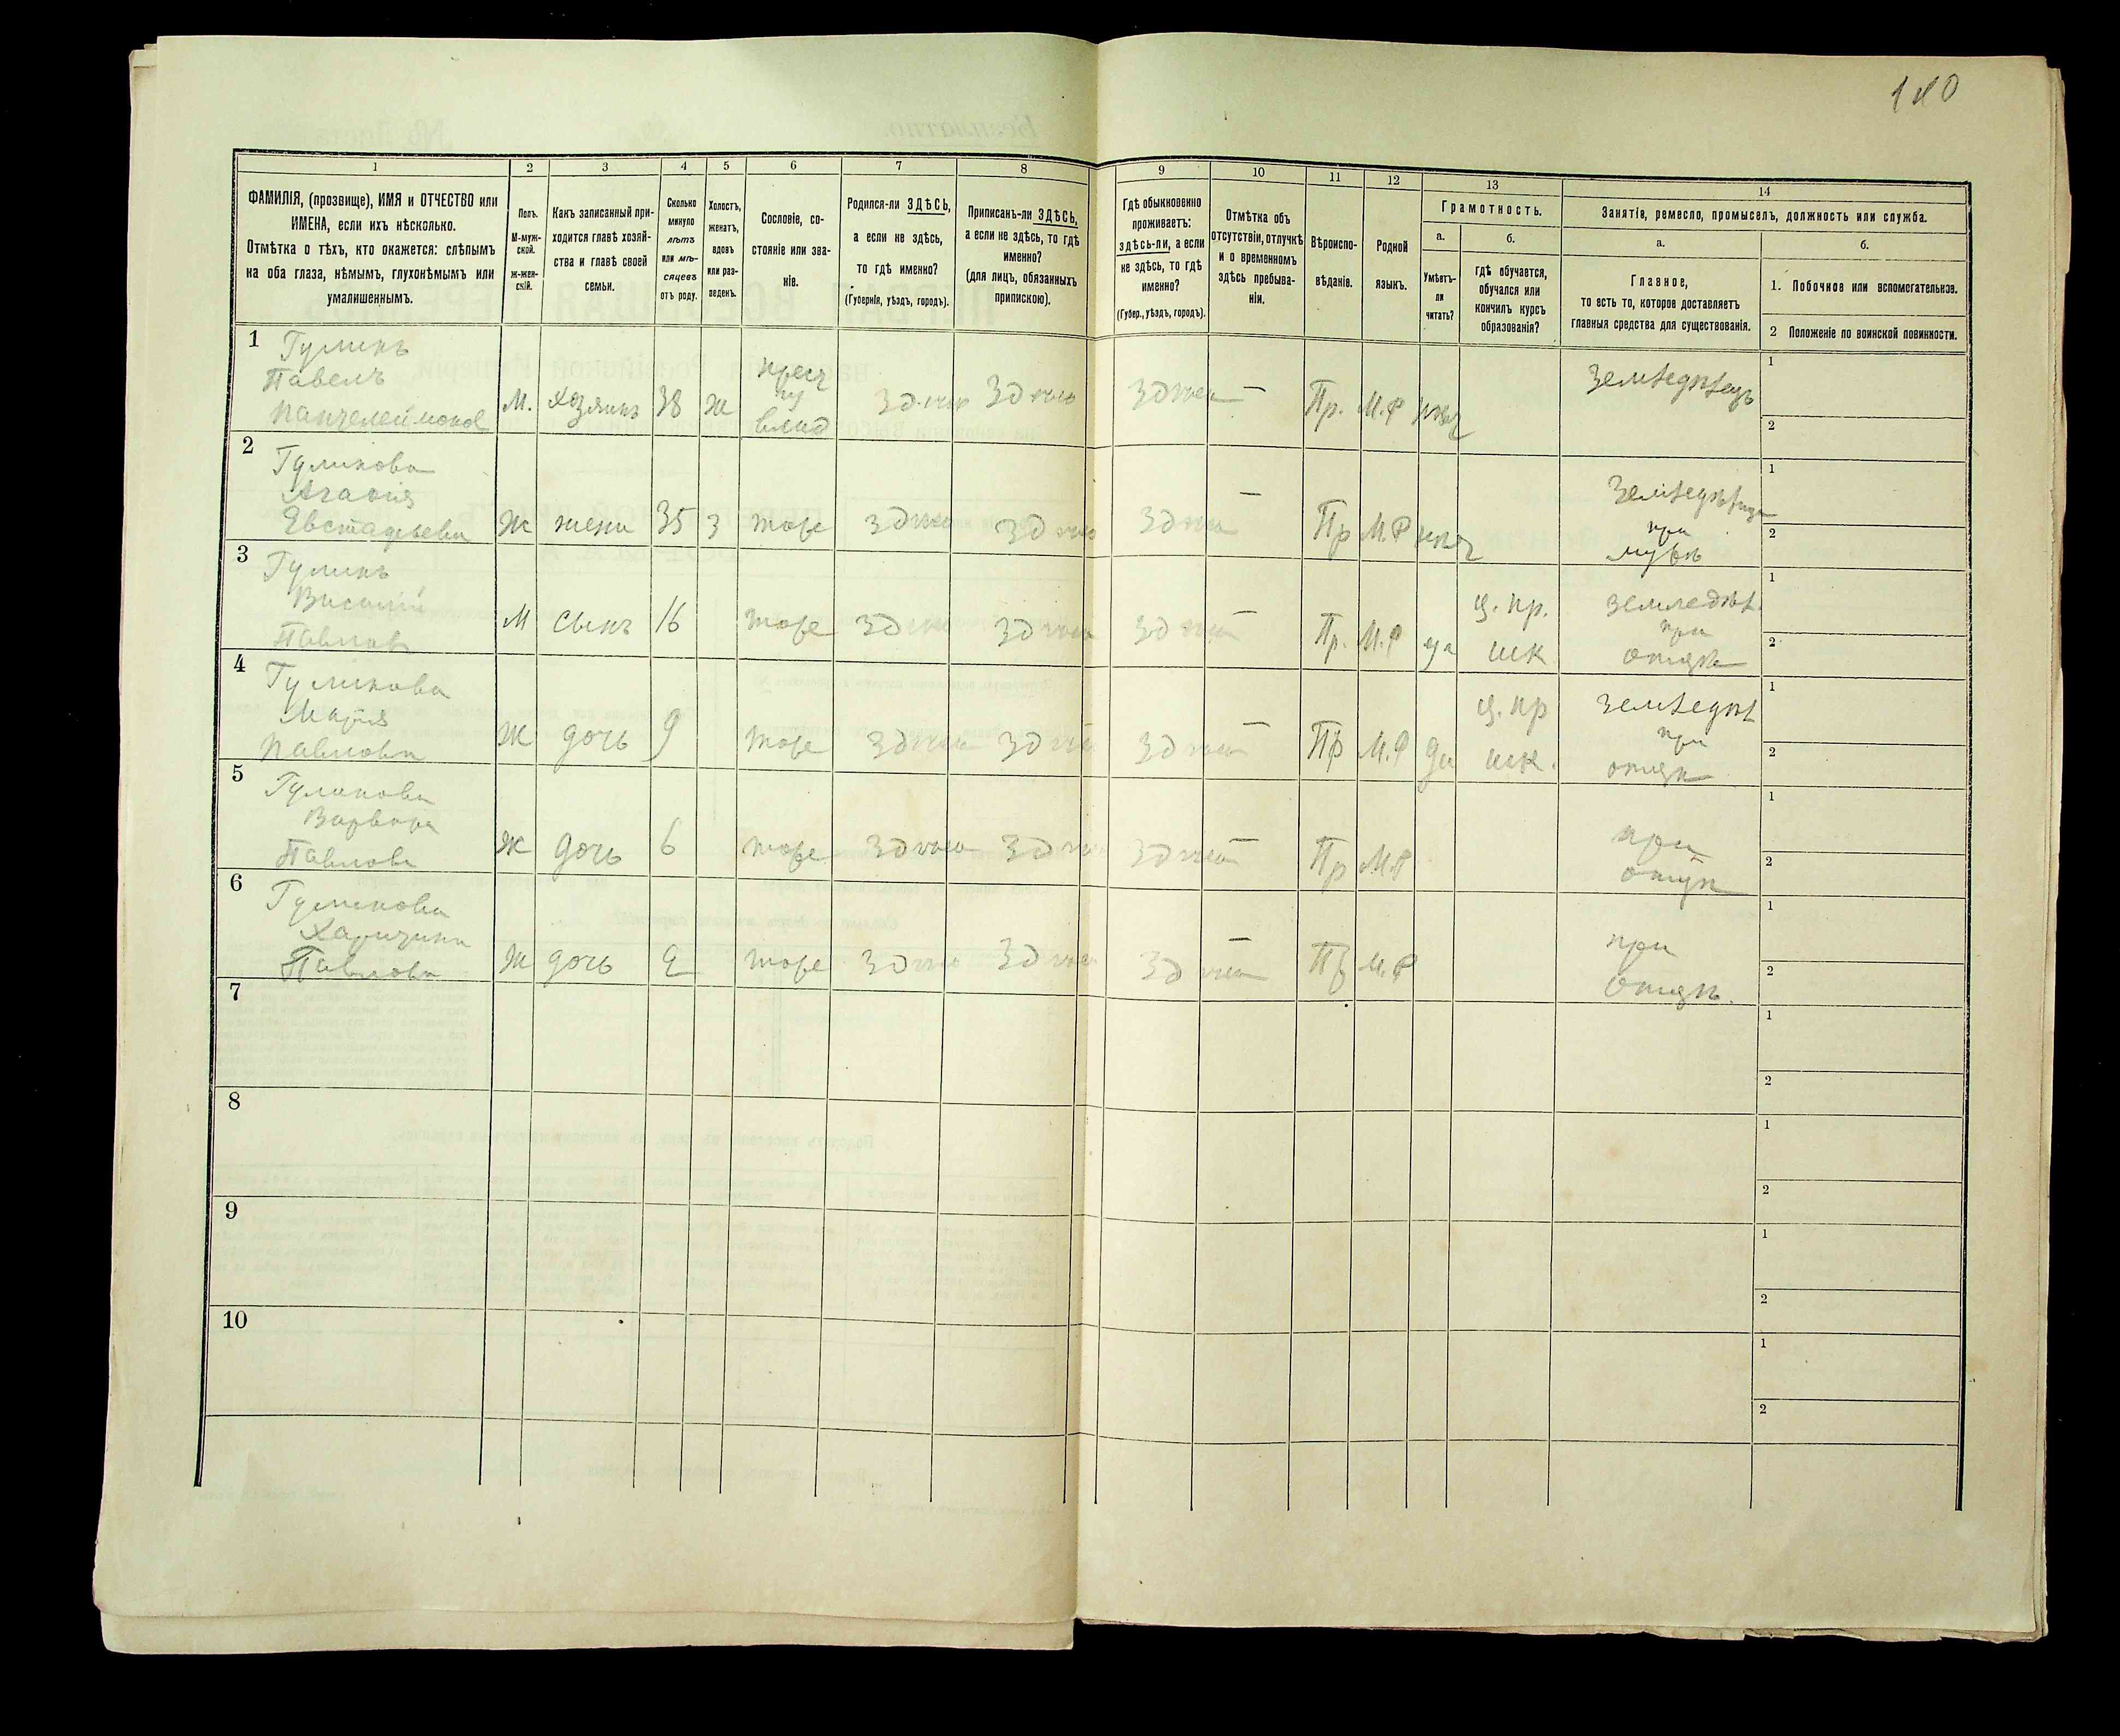 110
1 2 3 4 5 6 7 8 9 10 11 12 13 14
ФАМИЛІЯ, (прозвище), ИМЯ и ОТЧЕСТВО или
ИМЕНА, если ихъ нѣсколько.
Отмѣтка о тѣхъ, кто окажется: слѣпымъ
на оба глаза, нѣмымъ, глухонѣмымъ или
умалишеннымъ.
Полъ.
М-муж-
ской.
ж-жен-
скій.
Какъ записанный при-
ходится главѣ хозяй-
ства и главѣ своей
семьи.
Сколько
минуло
лѣтъ
или мѣ-
сяцевъ
отъ роду.
Холостъ,
женатъ,
вдовъ
или раз-
веденъ.
Сословіе, со-
стояніе или зва-
ніе.
Родился-ли ЗДѢСЬ,
а если не здѣсь,
то гдѣ именно?
(Губернія, уѣздъ, городъ).
Приписанъ-ли ЗДѢСЬ,
а если не здѣсь, то гдѣ
именно?
(для лицъ, обязанныхъ
припискою).
Гдѣ обыкновенно
проживаетъ:
здѣсь-ли, а если
не здѣсь, то гдѣ
именно?
(Губер., уѣздъ, городъ).
Отмѣтка объ
отсутствіи, отлучкѣ
и о временномъ
здѣсь пребыва-
ніи.
Вѣроиспо-
вѣданіе.
Родной
языкъ.
Грамотность.
а.
Умѣетъ-
ли
читать?
б.
гдѣ обучается,
обучался или
кончилъ курсъ
образованія?
Занятіе, ремесло, промыселъ, должность или служба.
а.
Главное,
то есть то, которое доставляетъ
главныя средства для существованія.
б.
1. Побочное или вспомогательное.
2 Положеніе по воинской повинности.
1 Гуликъ
Павелъ
М. Хозяинъ 38 ж
Пр. М.Р
Земледѣлецъ
1
2
2 Гуликова
Агафія
Евстафьева Ж жена 35 З тоже
Пр М.Р
при
мужѣ
1
2
3 Гуликъ
Василій
Павловъ М сынъ 16 тоже
Пр. М.Р да ц. пр. шк
земледѣл.
при
отцѣ
1
2
4 Гуликова
Марія
Павлова Ж дочь 9 тоже
Пр М.Р да ц. пр шк.
земледѣл
при
отцѣ
1
2
5 Гуликова
Варвара
Павлова Ж дочь 6 тоже
Пр М.Р
при
отцѣ
1
2
6 Гуликова
Харитина
Павлова Ж дочь 2 тоже
Пр М.Р
при
отцѣ.
1
2
7
1
2
8
1
2
9
1
2
10
1
2